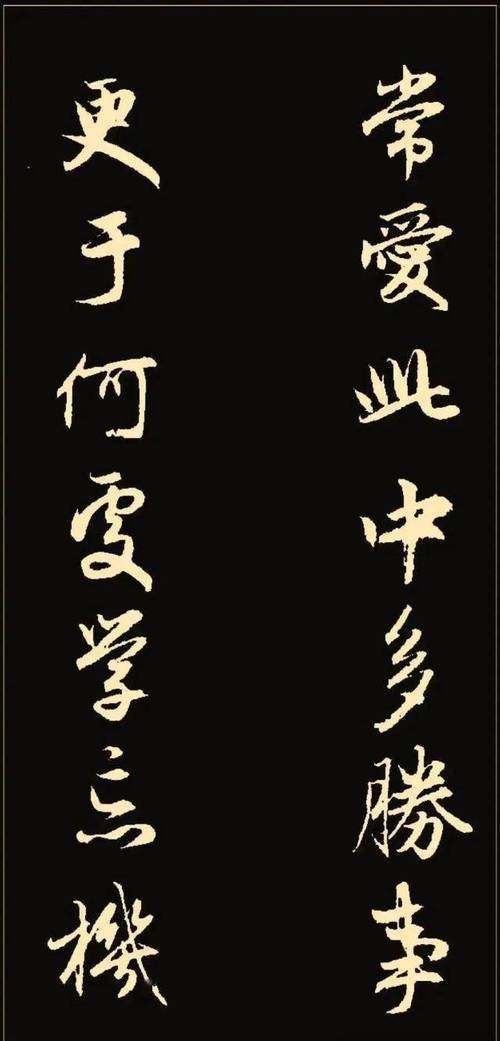 常愛此中多勝事
更于何處学忘機